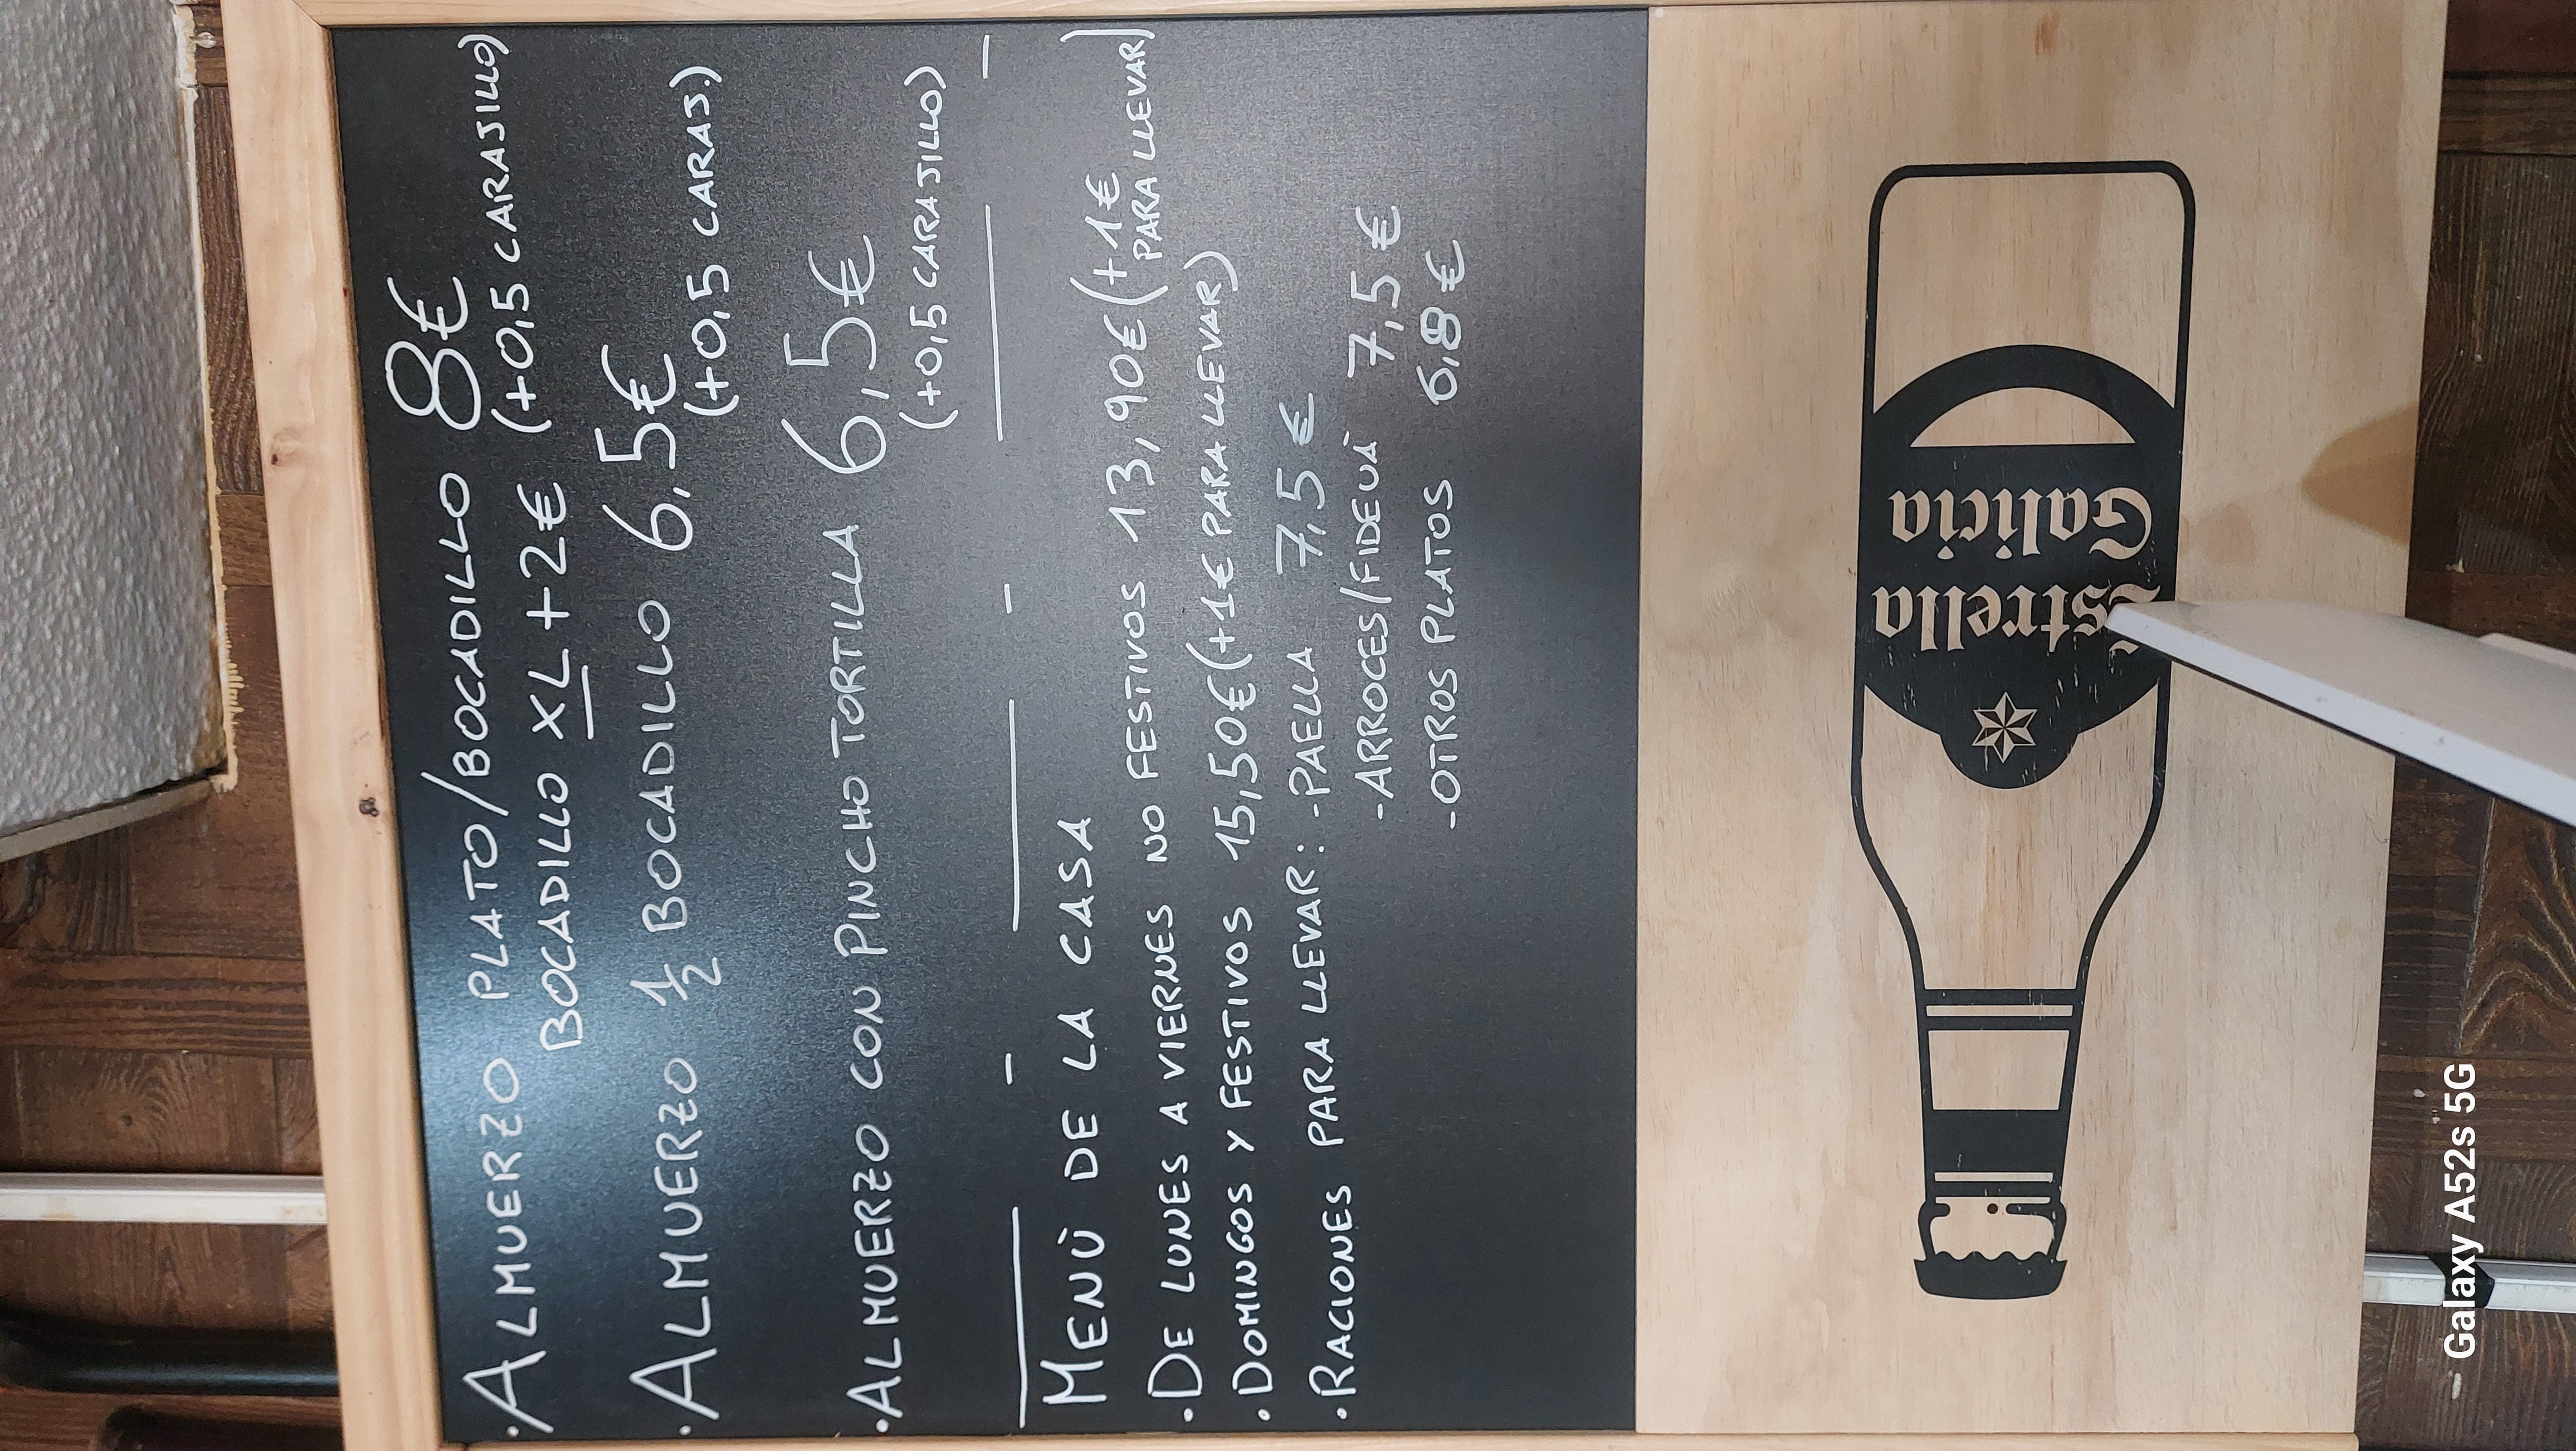 · ALMUERZO PLATO/BOCADILLO 8€
BOCADILLO XL +2€ (+0,5 CARAJILLO)
· ALMUERZO 1/2 BOCADILLO 6,5€
(+0,5 CARAJ.)
· ALMUERZO CON PINCHO TORTILLA 6,5€
(+0,5 CARAJILLO)
MENÙ DE LA CASA
· DE LUNES A VIERNES NO FESTIVOS 13,90€ (+1€ PARA LLEVAR)
· DOMINGOS Y FESTIVOS 15,50€ (+1€ PARA LLEVAR)
· RACIONES PARA LLEVAR: -PAELLA 7,5€
-ARROCES/FIDEUÀ 7,5€
-OTROS PLATOS 6,8€
Estrella
Galicia
- Galaxy A52s 5G